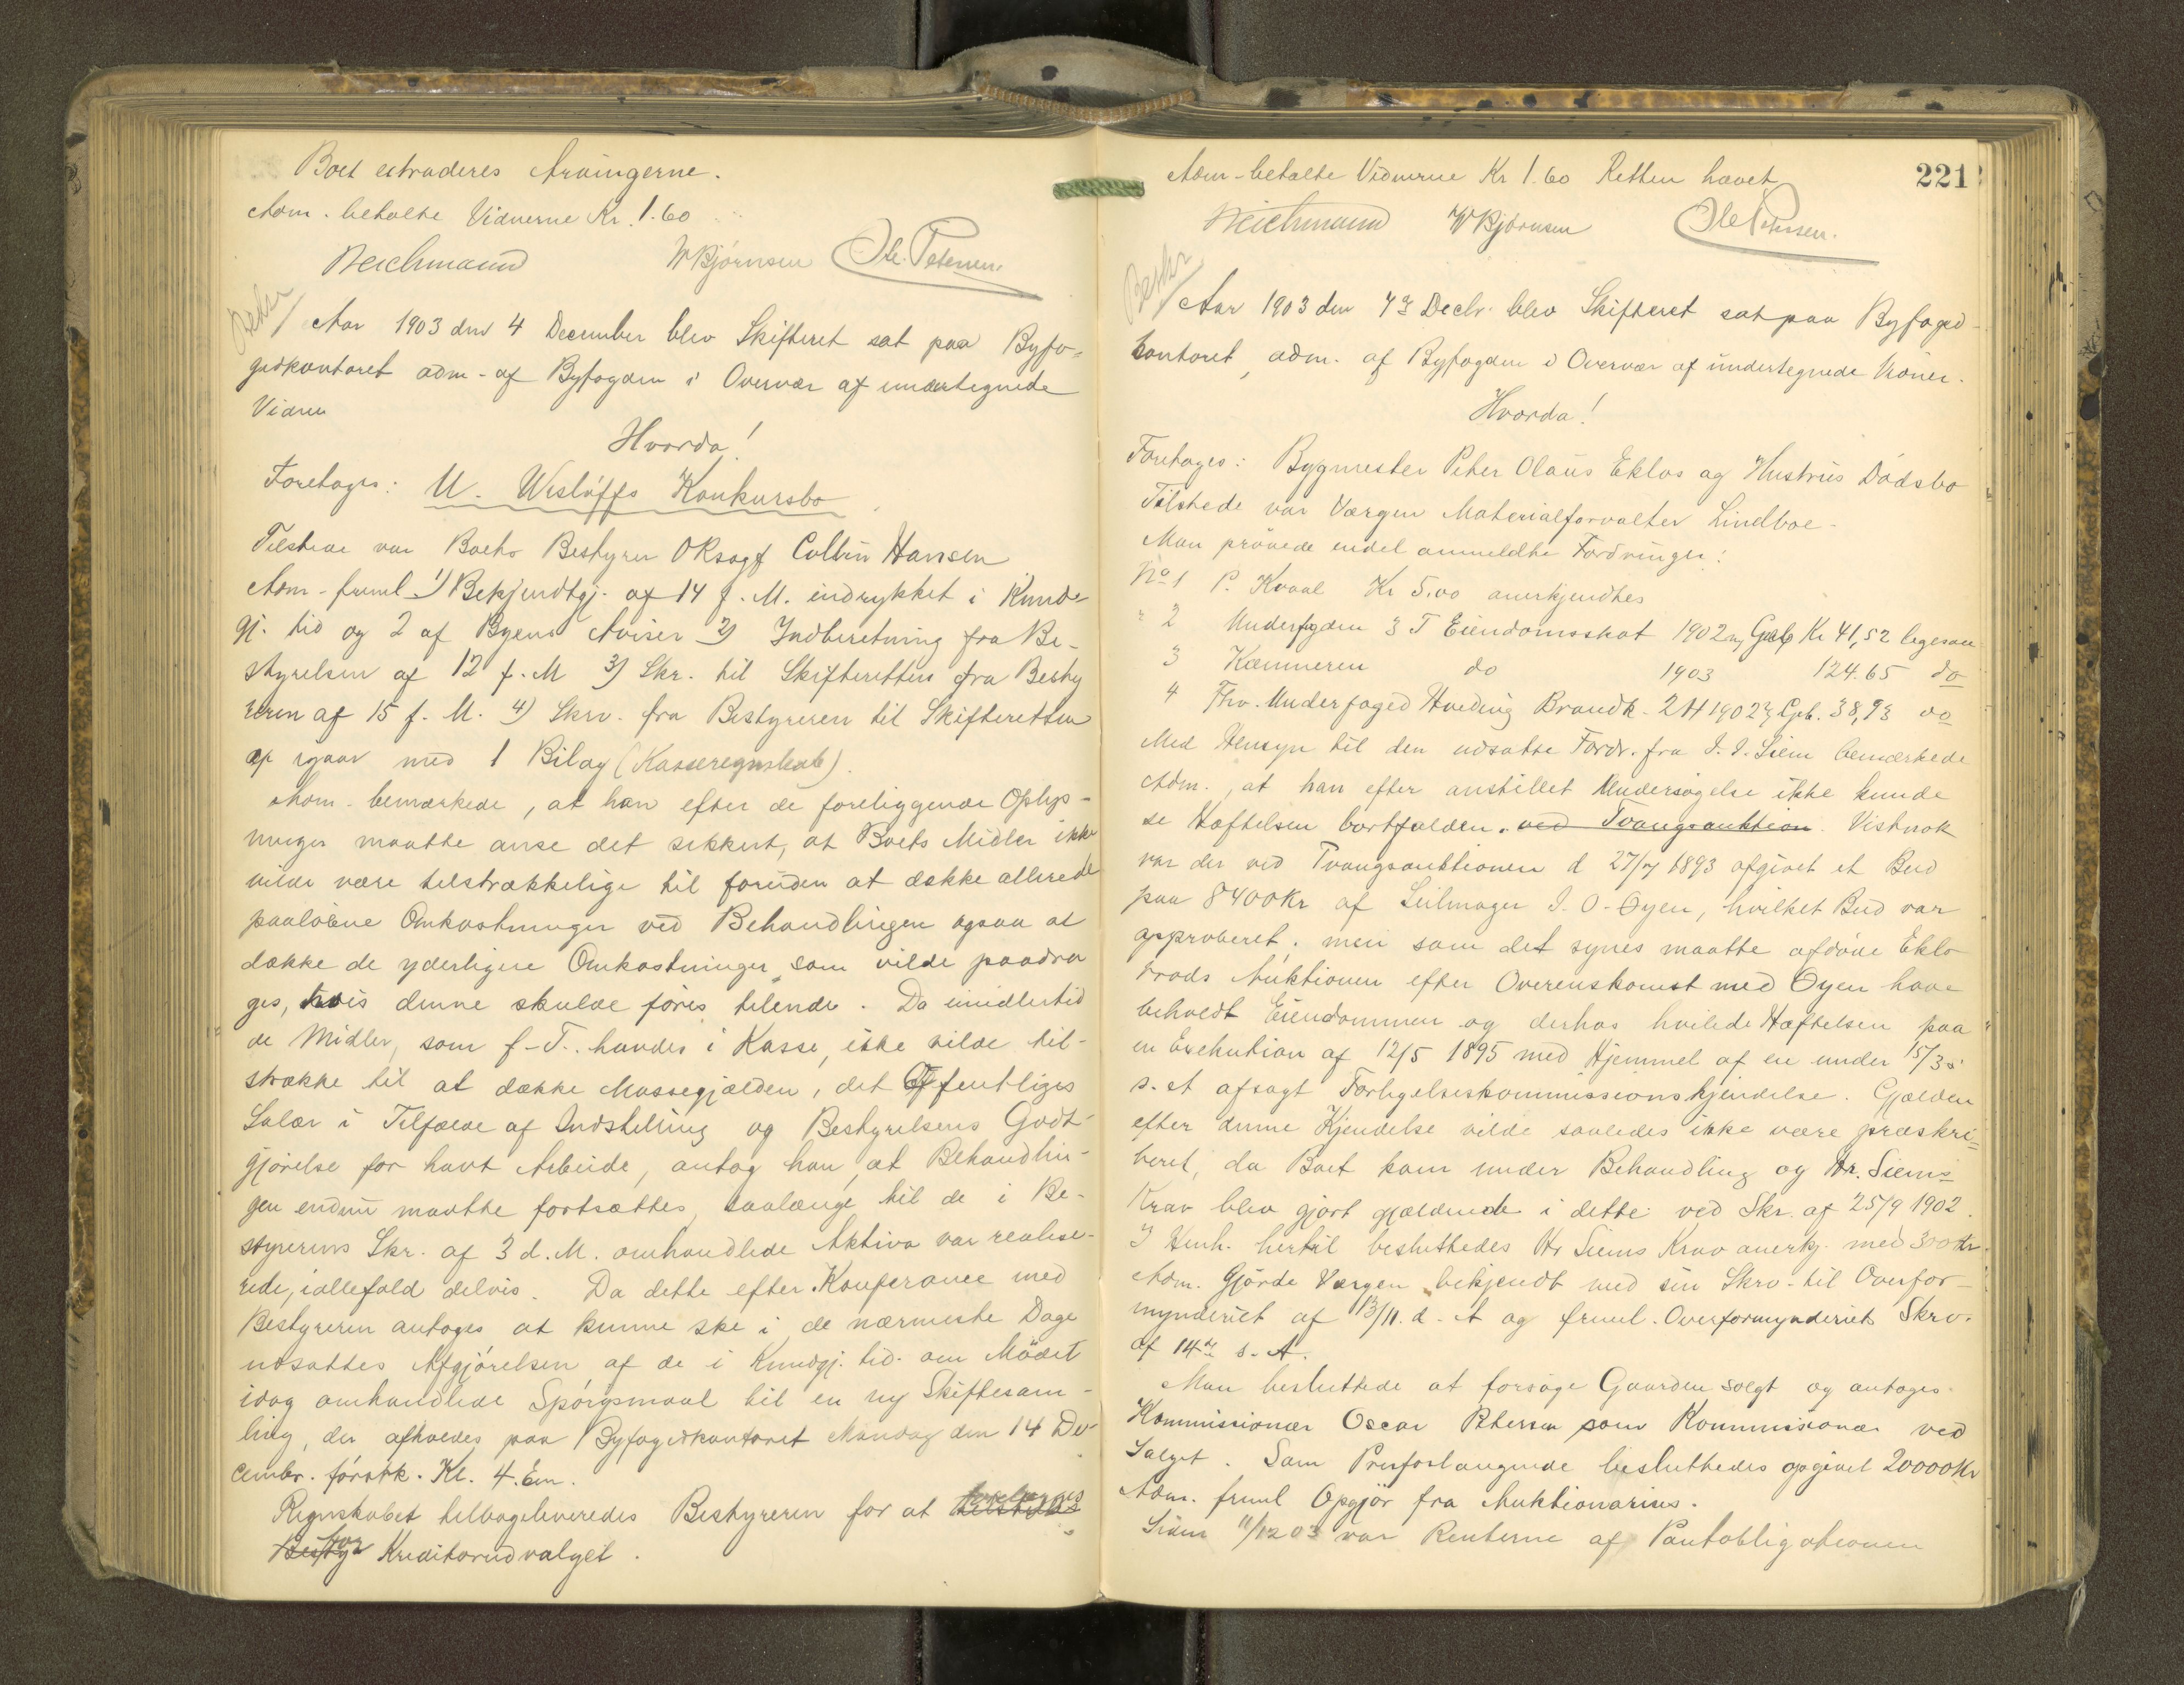 Boet extraderes Arvingerne.
Adm. betalte Vidnerne Kr. 1.60
Weichmann W Bjørnsen Ole Petersen.
Beskr
Aar 1903 den 4 December blev Skifteret sat paa Byfo-
gedkontoret adm. af Byfogden i Overvær af undertegnede
Vidner
Hvorda!
Foretoges: U. Wisløffs Konkursbo
Tilstede var Boets Bestyrer ORsagf Collin Hansen
Adm. freml 1) Bekjendtgj. af 14 f. M. indrykket i Kund-
gj. tid og 2 af Byens Aviser 2) Indberetning fra Be-
styrelsen af 12 f. M 3) Skr. til Skifteretten fra Besty
reren af 15 f. M. 4) Skrv. fra Bestyreren til Skifteretten
af igaar med 1 Bilag (Kasseregnskab).
Adm. bemærkede, at han efter de foreliggende Oplys-
ninger maatte anse det sikkert, at Boets Midler ikke
vilde være tilstrækkelige til foruden at dække allerede
paaløbne Omkostninger ved Behandlingen ogsaa at
dække de yderligere Omkostninger, som vilde paadra
ges, hvis denne skulde føres tilende. Da imidlertid
de Midler, som f. T. havdes i Kasse, ikke vilde til-
strække til at dække Massegjælden, det Offentliges
Salær i Tilfælde af Indstilling og Bestyrelsens Godt-
gjørelse for havt Arbeide, antog han, at Behandlin-
gen endnu maatte fortsættes, saalænge til de i Be-
styrerens Skr. af 3 d. M. omhandlede Aktiva var realise-
rede, iallefald delvis. Da dette efter Konferance med
Bestyreren antoges at kunne ske i de nærmeste Dage
udsattes Afgjørelsen af de i Kundgj. tid. om Mødet
idag omhandlede Spørgsmaal til en ny Skiftesam-
ling, der afholdes paa Byfogedkontoret Mandag den 14 De-
cembr. førstk. Kl. 4. Em.
Regnskabet tilbageleveredes Bestyreren for at forelægges
for Kreditorudvalget.
221
Adm. betalte Vidnerne Kr 1.60 Retten hævet
Weichmann W Bjørnsen Ole Petersen.
Beskr
Aar 1903 den 7de Decbr. blev Skifteret sat paa Byfoged-
kontoret, adm. af Byfogden i Overvær af undertegnede Vidner.
Hvorda!
Foretoges: Bygmester Peter Olaus Eklos og Hustrus Dødsbo
Tilstede var Værgen Materialforvalter Lindboe-
Man prøvede endel anmeldte Fordringer:
No 1 P. Kvaal Kr 5,00 anerkjendtes
" 2 Underfogden 3 T Eiendomsskat 1902 og Geb Kr 41,52 ligesaa
3 Kæmneren do 1903 124.65 do
4 Fhv. Underfoged Hveding Brandk. 2 H 1902 og Geb. 38,93 do
Med Hensyn til den udsatte Fordr. fra I. I. Siem bemærkede
Adm., at han efter anstillet Undersøgelse ikke kunde
se Hæftelsen bortfalden. ved Tvangsauktion. Vistnok
var der ved Tvangsauktionen d 27/7 1893 afgivet et Bud
paa 8400 Kr af Seilmager I. O. Øyen, hvilket Bud var
approberet; men som det synes maatte afdøde Eklo
trods Auktionen efter Overenskomst med Øyen have
beholdt Eiendommen og derhos hvilede Hæftelsen paa
en Exekution af 12/5 1895 med Hjemmel af en under 15/3
s. A afsagt Forligelseskommissionskjendelse. Gjælden
efter denne Kjendelse vilde saaledes ikke være præskri-
beret, da Boet kom under Behandling og Hr. Siems
Krav blev gjort gjældende i dette ved Skr. af 25/9 1902.
I Henh. hertil besluttedes Hr Siems Krav anerkj. med 300 Kr.
Adm. Gjorde Værgen bekjendt med sin Skrv. til Overfor-
mynderiet af 13/11. d. A og freml. Overformynderiets Skrv.
af 14de s. A.
Man besluttede at forsøge Gaarden solgt og antoges
Kommissionær Oscar Petersen som Kommissionær ved
Salget. Som Prisforlangende besluttedes opgivet 20000 Kr
Adm. freml Opgjør fra Auktionarius.
Siden 11/12 03 var Renterne af Pantobligationen